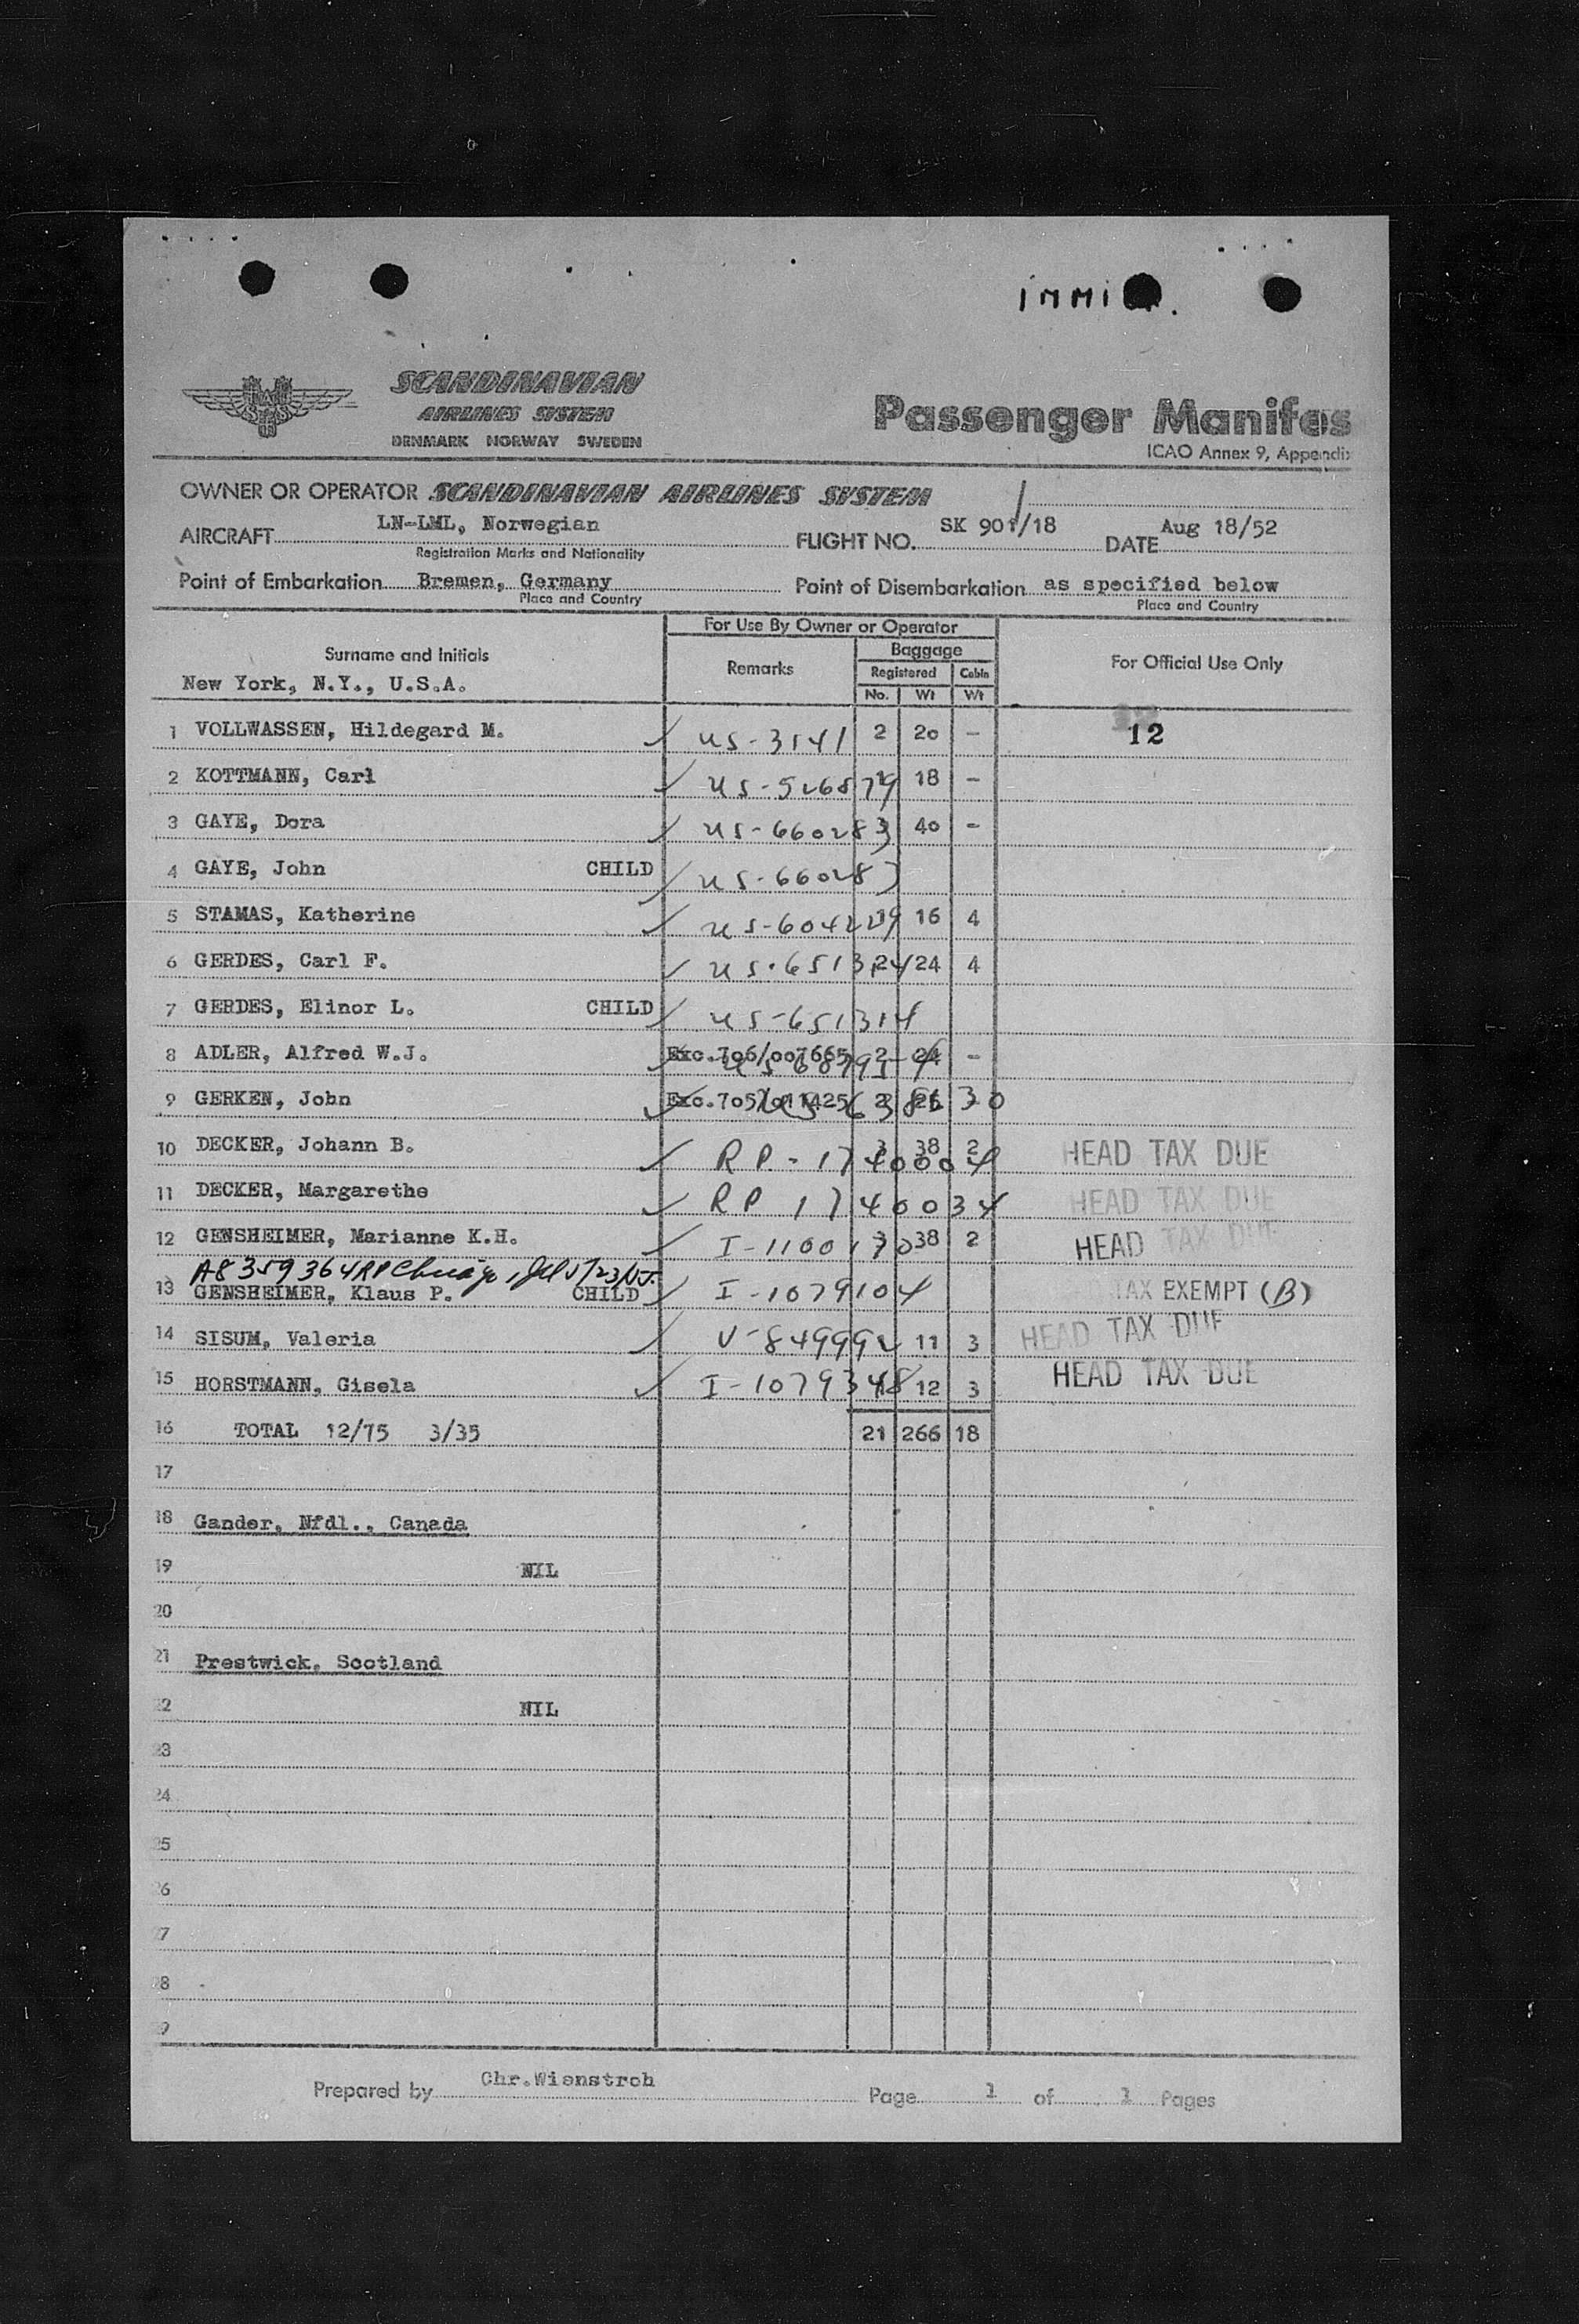 IMMI
SCANDINAVIAN
AIRLINES SYSTEM
DENMARK NORWAY SWEDEN
Passenger Manifes
ICAO Annex 9, Appendix
OWNER OR OPERATOR SCANDINAVIAN AIRLINES SYSTEM
AIRCRAFT LN-LML, Norwegian FLIGHT NO. SK 901/18 DATE Aug 18/52
Registration Marks and Nationality
Point of Embarkation Bremen, Germany Point of Disembarkation as specified below
Place and Country Place and Country
For Use By Owner or Operator
Surname and Initials Remarks Baggage For Official Use Only
Registered Cabin
New York, N.Y., U.S.A. No. Wt Wt
1 VOLLWASSEN, Hildegard M. US-3141 2 20 - 12
2 KOTTMANN, Carl 18 -
3 GAYE, Dora US-660283 40 -
4 GAYE, John CHILD US-66028
5 STAMAS, Katherine 16 4
6 GERDES, Carl F. 24 4
7 GERDES, Elinor L. CHILD US-651314
8 ADLER, Alfred W.J. Exc.706/007665 2 24 -
9 GERKEN, John Exc.705/011425
10 DECKER, Johann B. RP-1740004 3 38 2 HEAD TAX DUE
11 DECKER, Margarethe RP 1740034 HEAD TAX DUE
12 GENSHEIMER, Marianne K.H. 38 2 HEAD TAX DUE
A8359364
13 GENSHEIMER, Klaus P. CHILD I-1079104 TAX EXEMPT (B)
14 SISUM, Valeria V-849992 11 3 HEAD TAX DUE
15 HORSTMANN, Gisela I-1079348 12 3 HEAD TAX DUE
16 TOTAL 12/75 3/35 21 266 18
17
18 Gander, Nfdl., Canada
19 NIL
20
21 Prestwick, Scotland
22 NIL
23
24
25
26
27
28
29
Prepared by Chr.Wienstroh Page 1 of 1 Pages